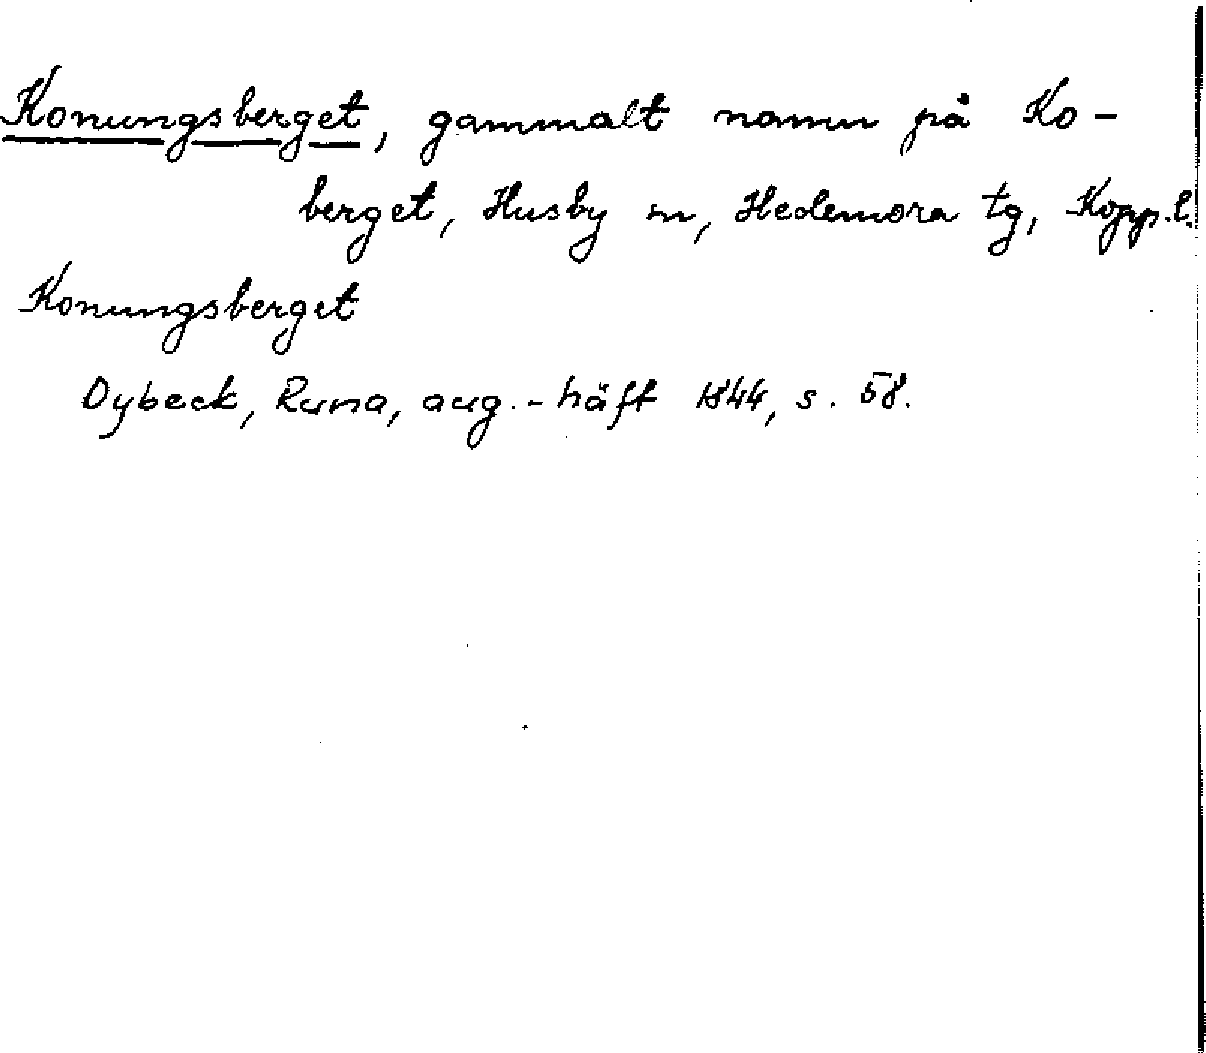 Konungsberget, gammalt namn på Ko-
berget, Husby sn, Hedemora tg, Kopp.l.
Konungsberget
Dybeck, Runa, aug.-häft 1844, s. 58.